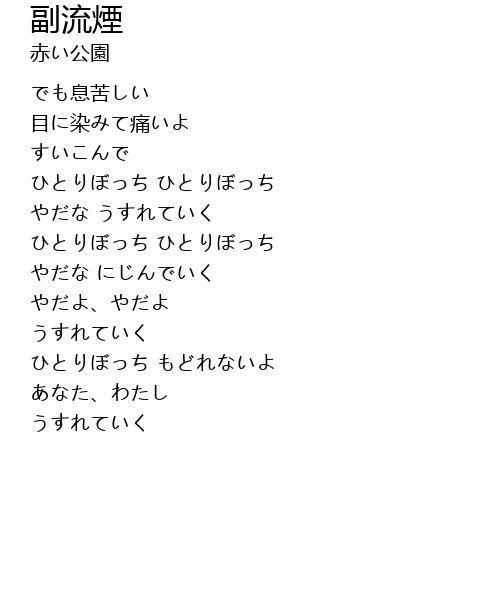 副流煙
赤い公園
でも息苦しい
目に染みて痛いよ
すいこんで
ひとりぼっち ひとりぼっち
やだな うすれていく
ひとりぼっち ひとりぼっち
やだな にじんでいく
やだよ、やだよ
うすれていく
ひとりぼっち もどれないよ
あなた、わたし
うすれていく